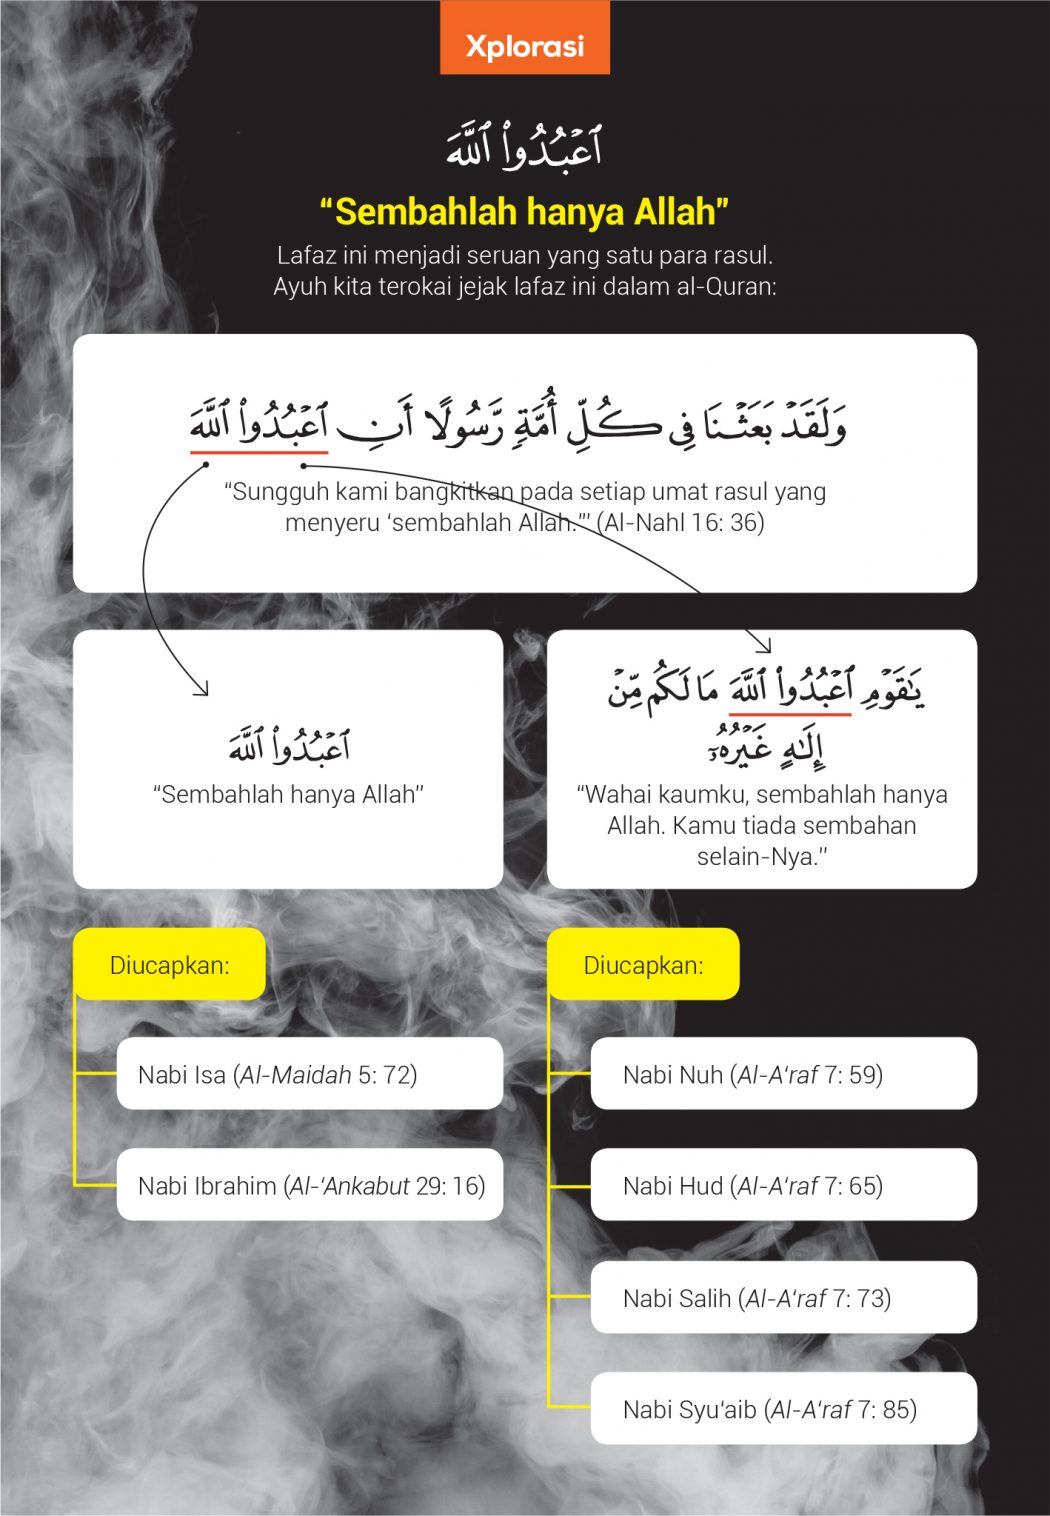 Xplorasi
ٱعۡبُدُواْ ٱللَّهَ
“Sembahlah hanya Allah”
Lafaz ini menjadi seruan yang satu para rasul.
Ayuh kita terokai jejak lafaz ini dalam al-Quran:
وَلَقَدۡ بَعَثۡنَا فِي كُلِّ أُمَّةٖ رَّسُولًا أَنِ ٱعۡبُدُواْ ٱللَّهَ
“Sungguh kami bangkitkan pada setiap umat rasul yang
menyeru ‘sembahlah Allah.”’ (Al-Nahl 16: 36)
ٱعۡبُدُواْ ٱللَّهَ
“Sembahlah hanya Allah”
يَٰقَوۡمِ ٱعۡبُدُواْ ٱللَّهَ مَا لَكُم مِّنۡ
إِلَٰهٍ غَيۡرُهُۥٓ
“Wahai kaumku, sembahlah hanya
Allah. Kamu tiada sembahan
selain-Nya.”
Diucapkan:
Nabi Isa (Al-Maidah 5: 72)
Nabi Ibrahim (Al-‘Ankabut 29: 16)
Diucapkan:
Nabi Nuh (Al-A‘raf 7: 59)
Nabi Hud (Al-A‘raf 7: 65)
Nabi Salih (Al-A‘raf 7: 73)
Nabi Syu‘aib (Al-A‘raf 7: 85)